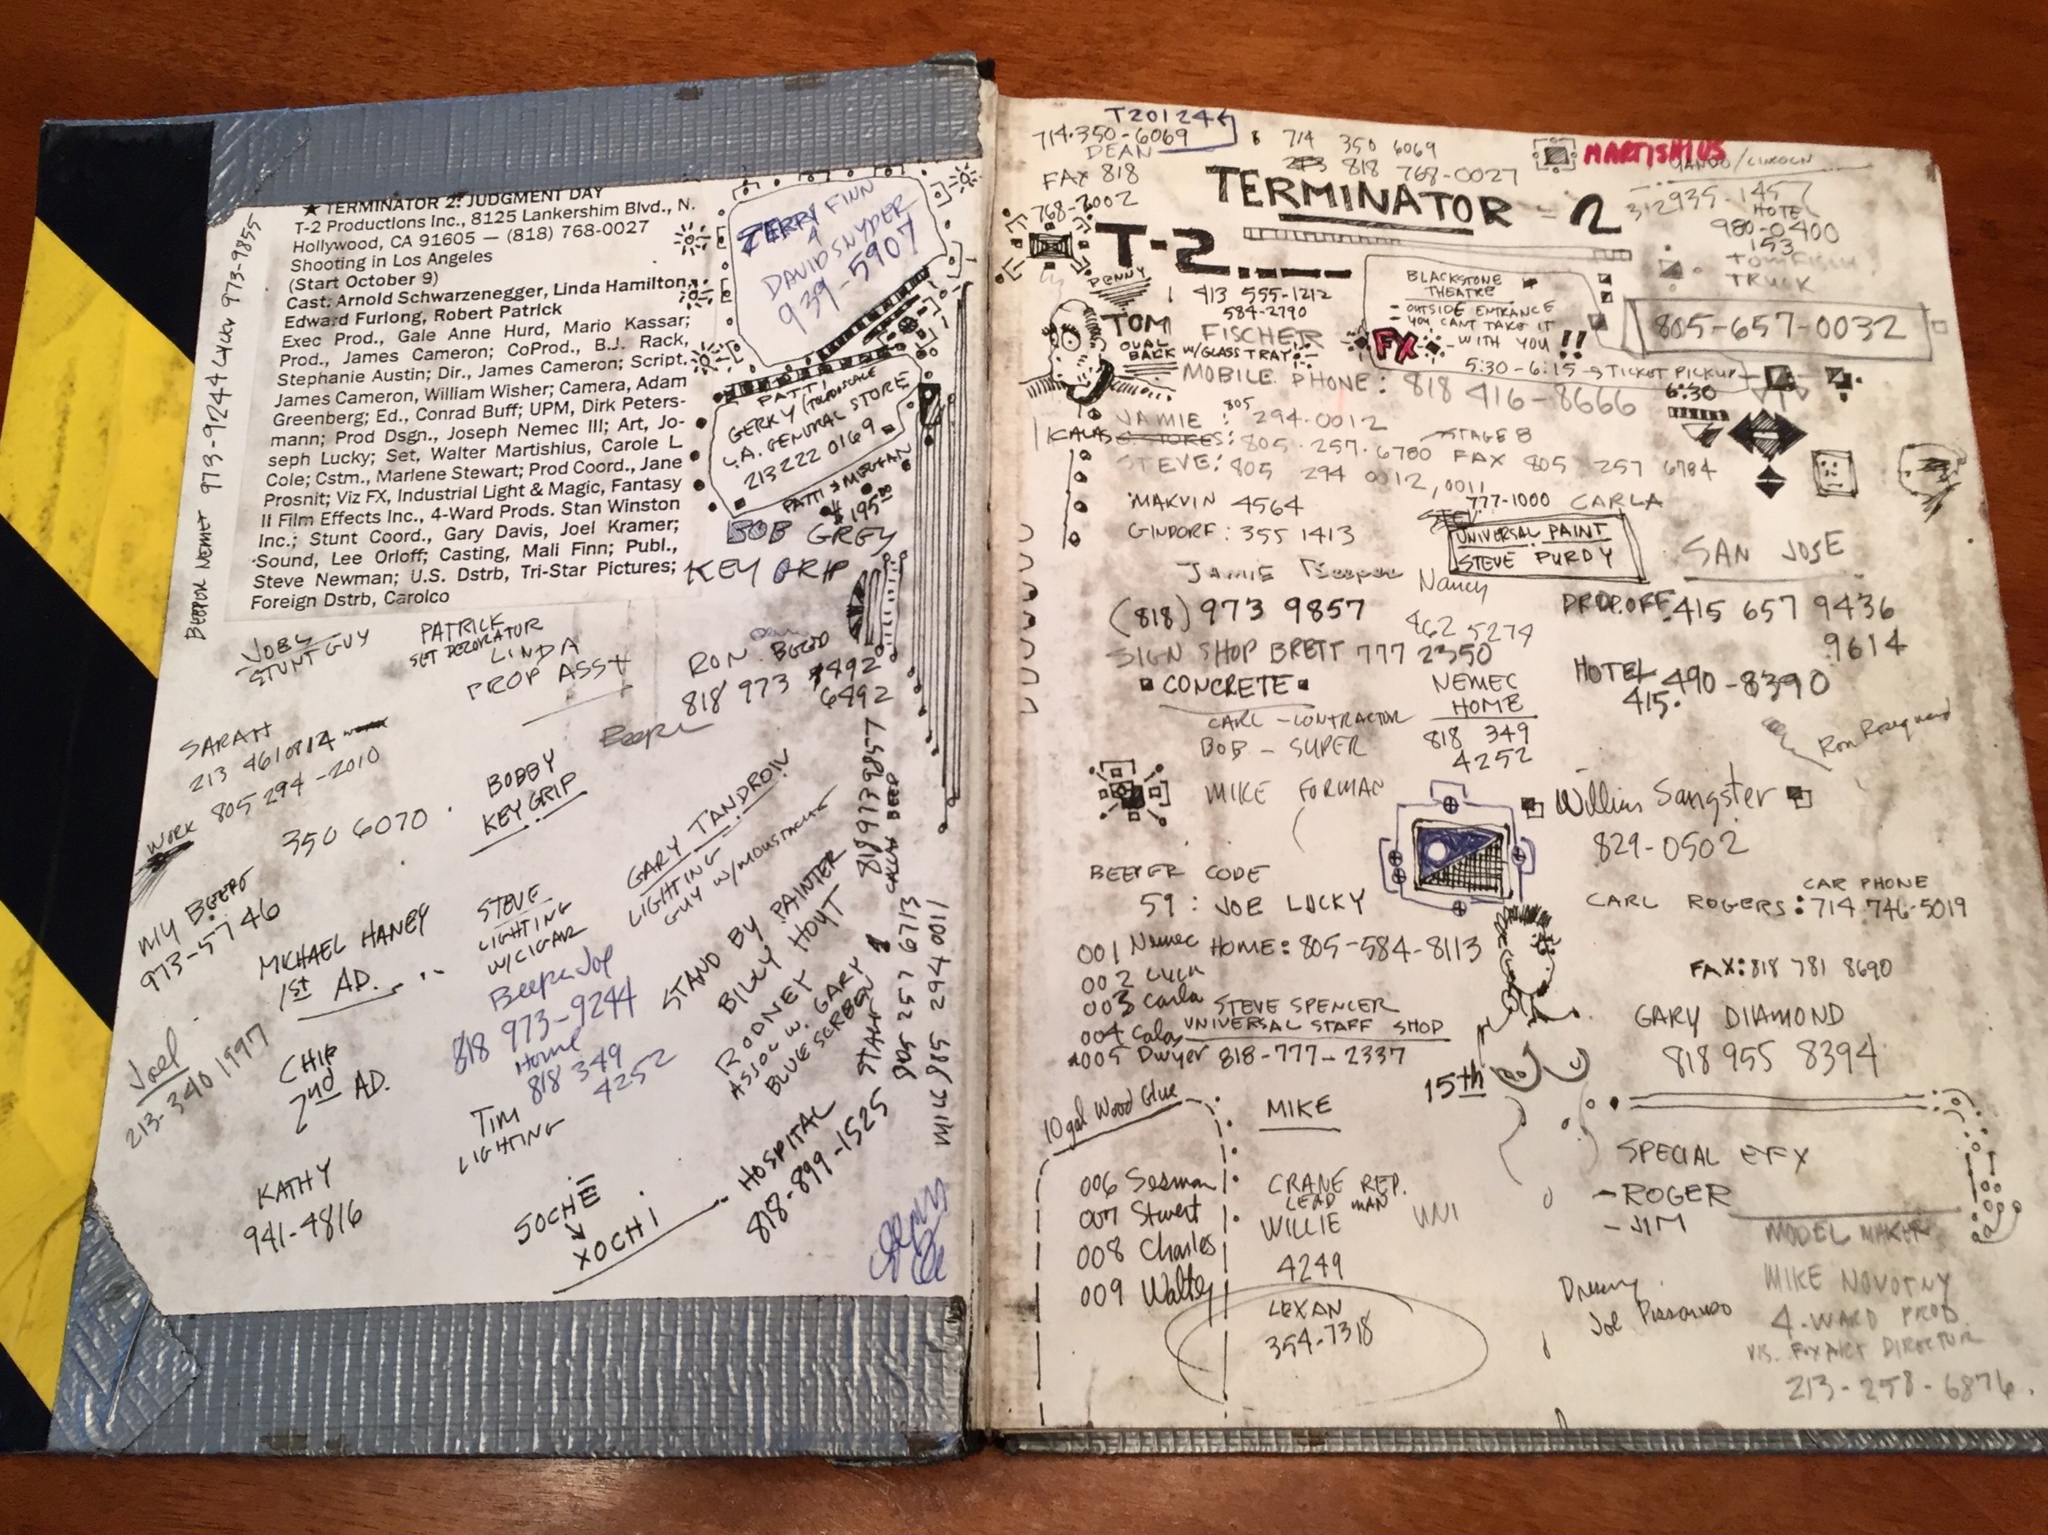 ★ TERMINATOR 2: JUDGMENT DAY
T-2 Productions Inc., 8125 Lankershim Blvd., N.
Hollywood, CA 91605 — (818) 768-0027
Shooting in Los Angeles
(Start October 9)
Cast: Arnold Schwarzenegger, Linda Hamilton,
Edward Furlong, Robert Patrick
Exec Prod., Gale Anne Hurd, Mario Kassar;
Prod., James Cameron; CoProd., B.J. Rack,
Stephanie Austin; Dir., James Cameron; Script.
James Cameron, William Wisher; Camera, Adam
Greenberg; Ed., Conrad Buff; UPM, Dirk Peters-
mann; Prod Dsgn., Joseph Nemec III; Art, Jo-
seph Lucky; Set, Walter Martishius, Carole L
Cole; Cstm., Marlene Stewart; Prod Coord., Jane
Prosnit; Viz FX, Industrial Light & Magic, Fantasy
II Film Effects Inc., 4-Ward Prods. Stan Winston
Inc.; Stunt Coord., Gary Davis, Joel Kramer;
Sound, Lee Orloff; Casting, Mali Finn; Publ.,
Steve Newman; U.S. Dstrb, Tri-Star Pictures;
Foreign Dstrb, Carolco
BEEPER NEMET 973-9244 LUCKY 973-9855
JERRY FINN
DAVID SNYDER
939-5907
PATTI
GERKY
L.A. GENERAL STORE
213 222 0169
PATTI
$195.00
BOB GREY
KEY GRIP
STUNT GUY
PATRICK
SET DECORATOR
LINDA
PROP ASST
RON
818 973 7492
6492
Beeper
SARAH
213 4610814
805 294-2010
WORK
350 6070
BOBBY
KEY GRIP
MY BEEPER
973-5746
MICHAEL HANEY
1st AD.
STEVE
LIGHTING
W/CIGAR
GARY TANDROW
LIGHTING
GUY W/MOUSTACHE
Beeper Joe
818 973-9244
Home
818 349
4252
STAND BY PAINTER
BILLY HOYT
RODNEY
ASSOC W. GARY
BLUE SCREEN
818 973 9857
CALAS BEEP
805 257 6713
MIKE 985 294 0011
Joel
213-340 1997
CHIP
2nd AD.
TIM
LIGHTING
KATHY
941-4816
SOCHE
XOCHI
HOSPITAL
818-899-1525
T20124
714-350-6069
DEAN
FAX 818
768-2002
714 350 6069
818 768-0027
MARTISHIUS
TERMINATOR - 2
T-2
312 935-1457
HOTEL
980-0400
153
TRUCK
805-657-0032
PENNY
413 555-1212
584-2790
TOM FISCHER
OVAL
BACK W/GLASS TRAY
MOBILE PHONE: 818 416-8666
BLACKSTONE
THEATRE
OUTSIDE ENTRANCE
YOU CANT TAKE IT
WITH YOU!!
FX
5:30-6:15 → TICKET PICKUP
6:30
JAMIE: 805 294-0012
KALAS
805-257-6780 FAX 805 257 6784
STAGE B
STEVE: 805 294 0012, 0011
MARVIN 4564
777-1000 CARLA
GINDORF: 355 1413
UNIVERSAL PAINT
STEVE PURDY
JAMIE Beeper
(818) 973 9857
Nancy
462 5274
SIGN SHOP BRETT 777 2350
SAN JOSE
DROP.OFF. 415 657 9436
9614
HOTEL 490-8390
415.
CONCRETE
CARL - CONTRACTOR
BOB - SUPER
MIKE FORMAN
NEMEC
HOME
818 349
4252
William Sangster
829-0502
BEEPER CODE
59: JOE LUCKY
CAR PHONE
CARL ROGERS: 714.746-5019
FAX: 818 781 8690
001 Nemec HOME: 805-584-8113
002
003 Carla
004 Calas
005 Dwyer
STEVE SPENCER
UNIVERSAL STAFF SHOP
818-777-2337
GARY DIAMOND
818 955 8394
15th
10 gal Wood Glue
MIKE
006 Sesman
007 Stuart
008 Charles
009 Walter
CRANE REP.
LEAD MAN
WILLIE
UNI
4249
LEXAN
354-7318
SPECIAL EFX
- ROGER
- JIM
MODEL MAKER
MIKE NOVOTNY
4-WARD PROD.
VIS. FX ART DIRECTOR
213-258-6876.